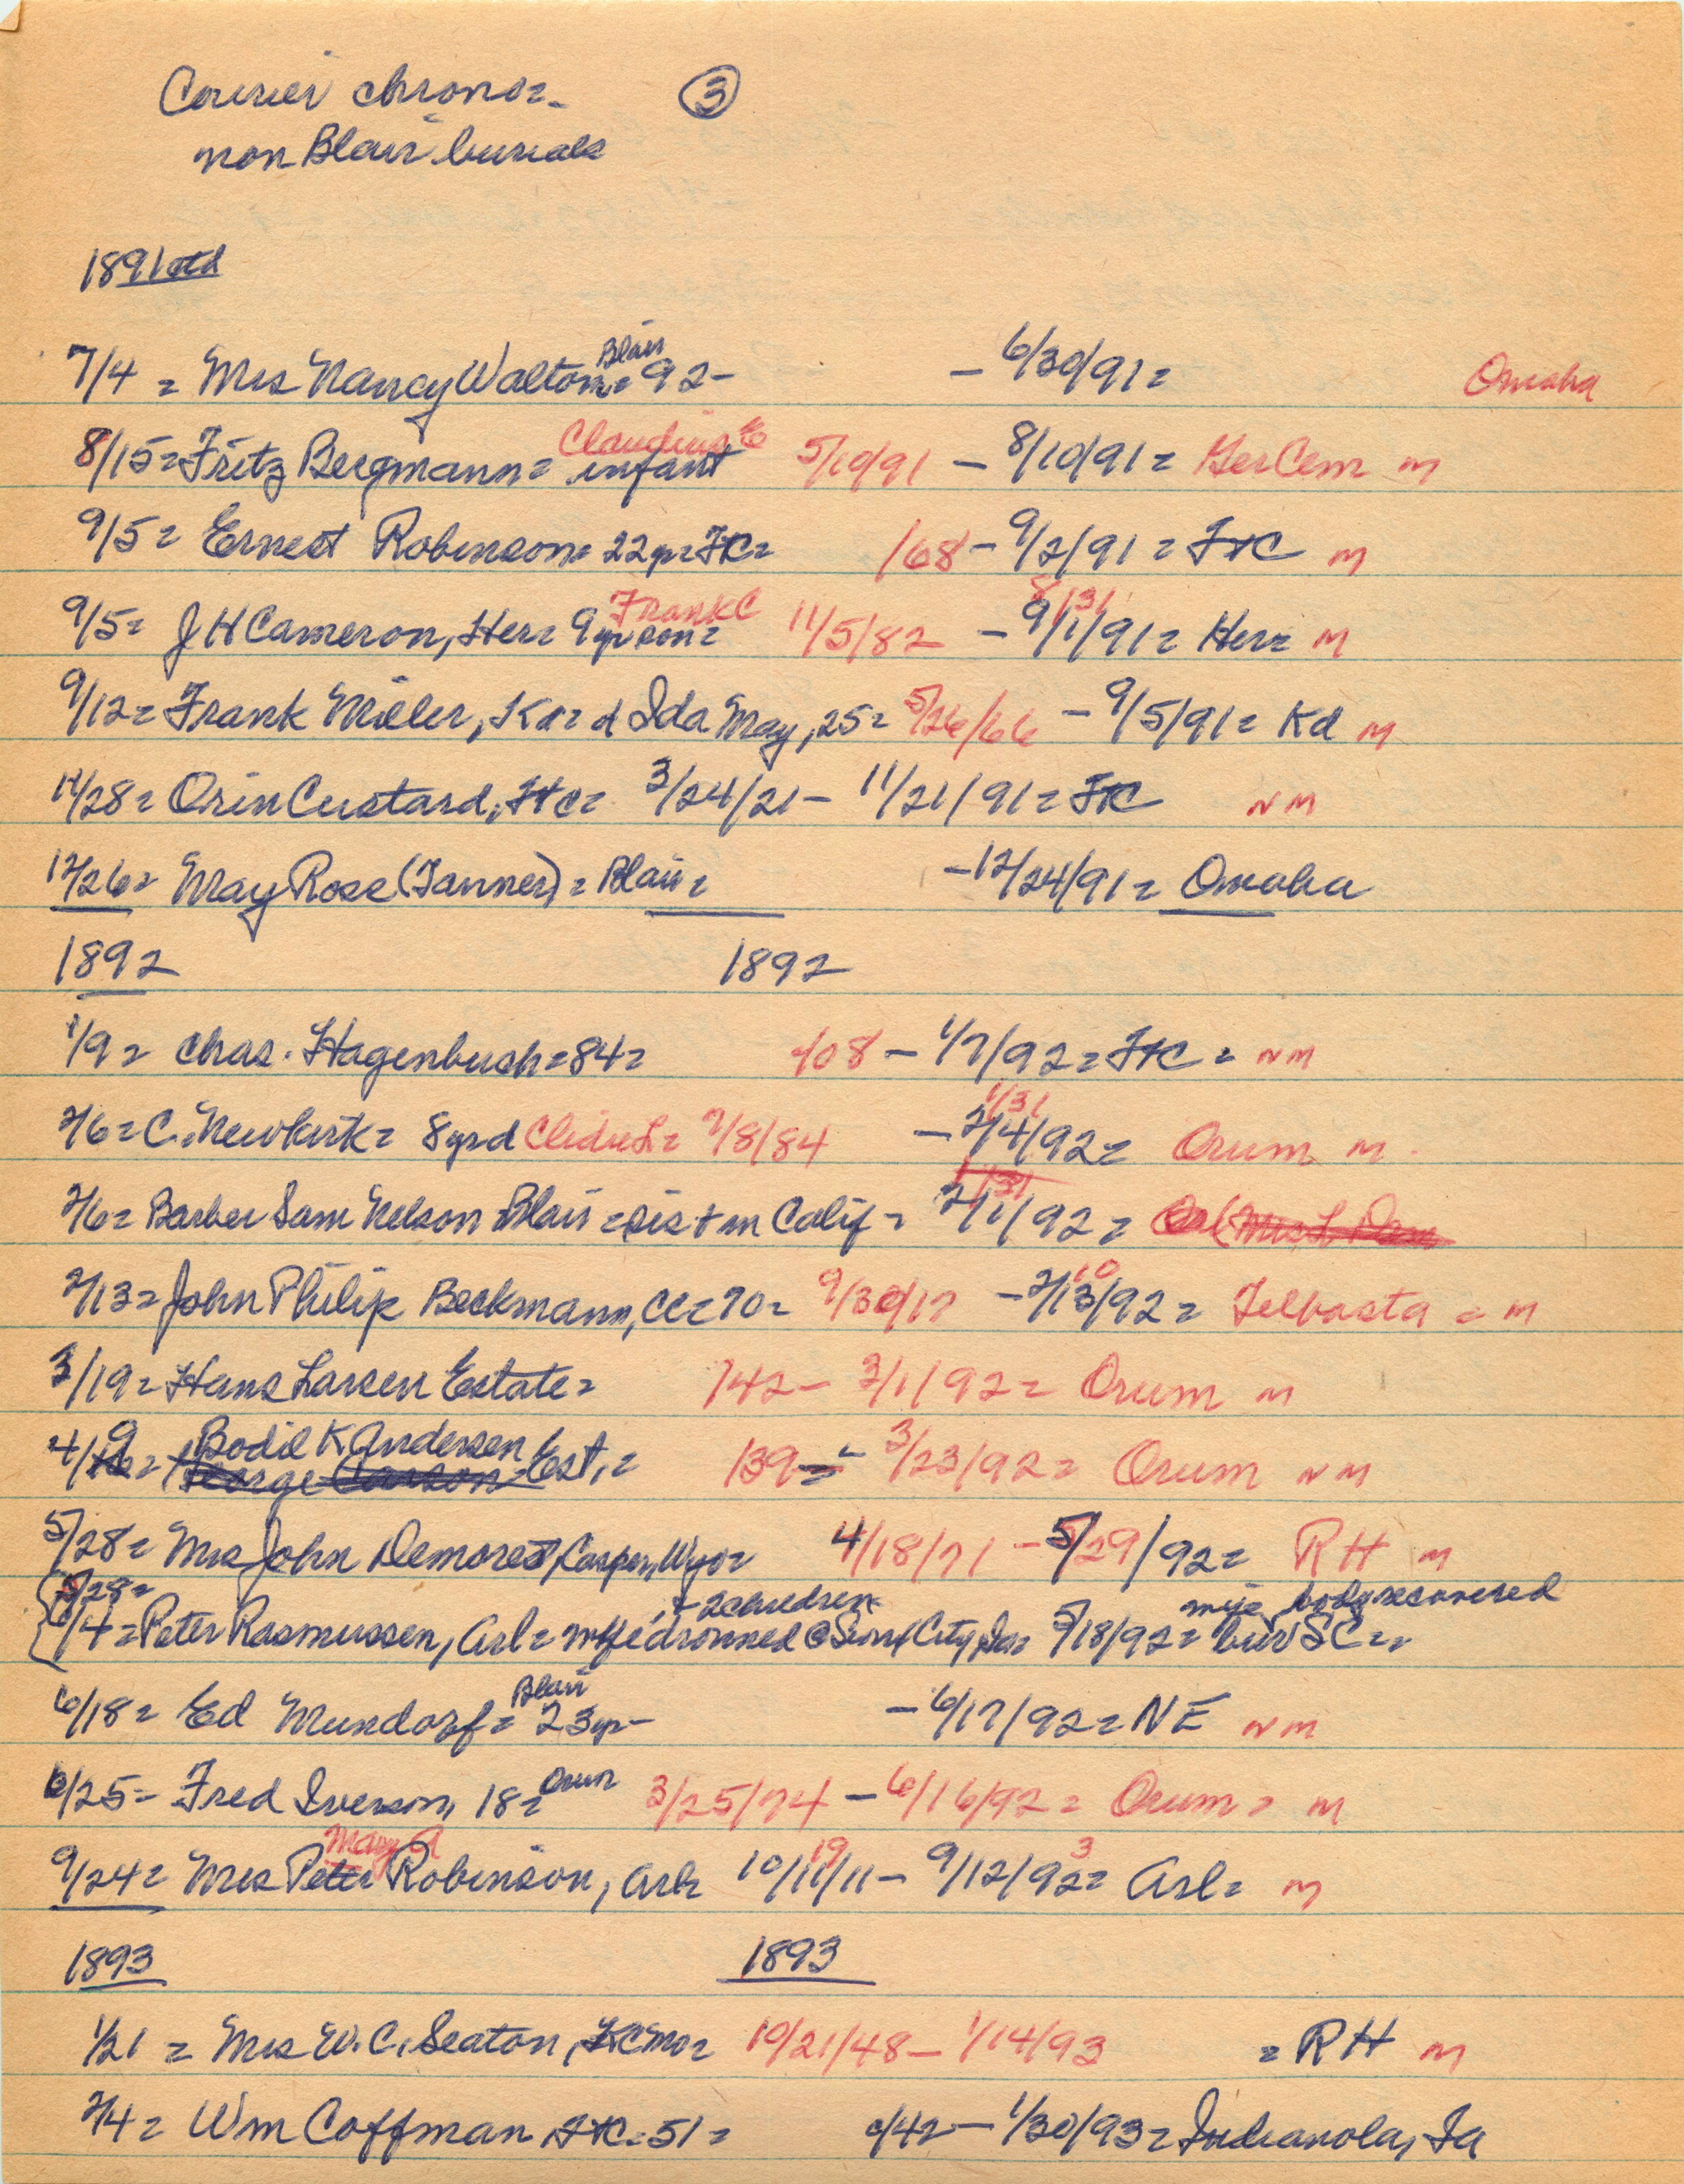 Courier chrono= ③
non Blair burials
1891 ctd
7/4 = Mrs Nancy Walton= Blair 92- - 6/30/91= Omaha
8/15= Fritz Bergmann= Claudius E infant 5/10/91 - 8/10/91= Ger Cem m
9/5= Ernest Robinson= 22yr= FtC= /68 - 9/2/91= FtC m
9/5= J H Cameron, Her= 9yr son= Frank C 11/5/82 - 9/1/91= 8/31 Her= m
9/12= Frank Miller, Kd= d Ida May, 25= 5/26/66 - 9/5/91= Kd m
11/28= Orin Custard, FtC= 3/24/21- 11/21/91= FtC nm
12/26= May Rose (Tanner)= Blair= -12/24/91= Omaha
1892 1892
1/9= Chas. Hagenbuch=84= /08 - 1/7/92= FtC= nm
2/6= C. Newkirk= 8yr d L= 2/8/84 - 2/4/92= 1/31 Orum m
2/6= Barber Sam Nelson Blair =sis + m Calif= 2/1/92= 1/31
2/13= John Philip Beckmann, CC=70= 9/30/17 - 2/13/92= 10 Telbasta = m
3/19= Hans Larsen Estate= /42- 3/1/92= Orum m
4/9= Bodil K Andersen George Carson Est.= /39- 3/23/92= Orum nm
5/28= Mrs John Demorest, Casper, Wyo= 4/18/71 - 5/29/92= RH m
5/28= + 2 children body recovered
6/4= Peter Rasmussen, Arl= wife drowned @ Sioux City, Ia= 5/18/92= bur SC=
6/18= Ed Mundorf= Blair 23yr- - 6/17/92= NE nm
6/25= Fred Iverson, 18= Orum 3/25/74 - 6/16/92= Orum= m
9/24= Mrs Peter Mary A Robinson, Arl= 10/11/11 19 - 9/12/92= 3 Arl= m
1893 1893
1/21 = Mrs W.C. Seaton, KC Mo= 10/21/48 - 1/14/93 = RH m
2/4= Wm Coffman FtC=51= c/42 - 1/30/93= Indianola, Ia